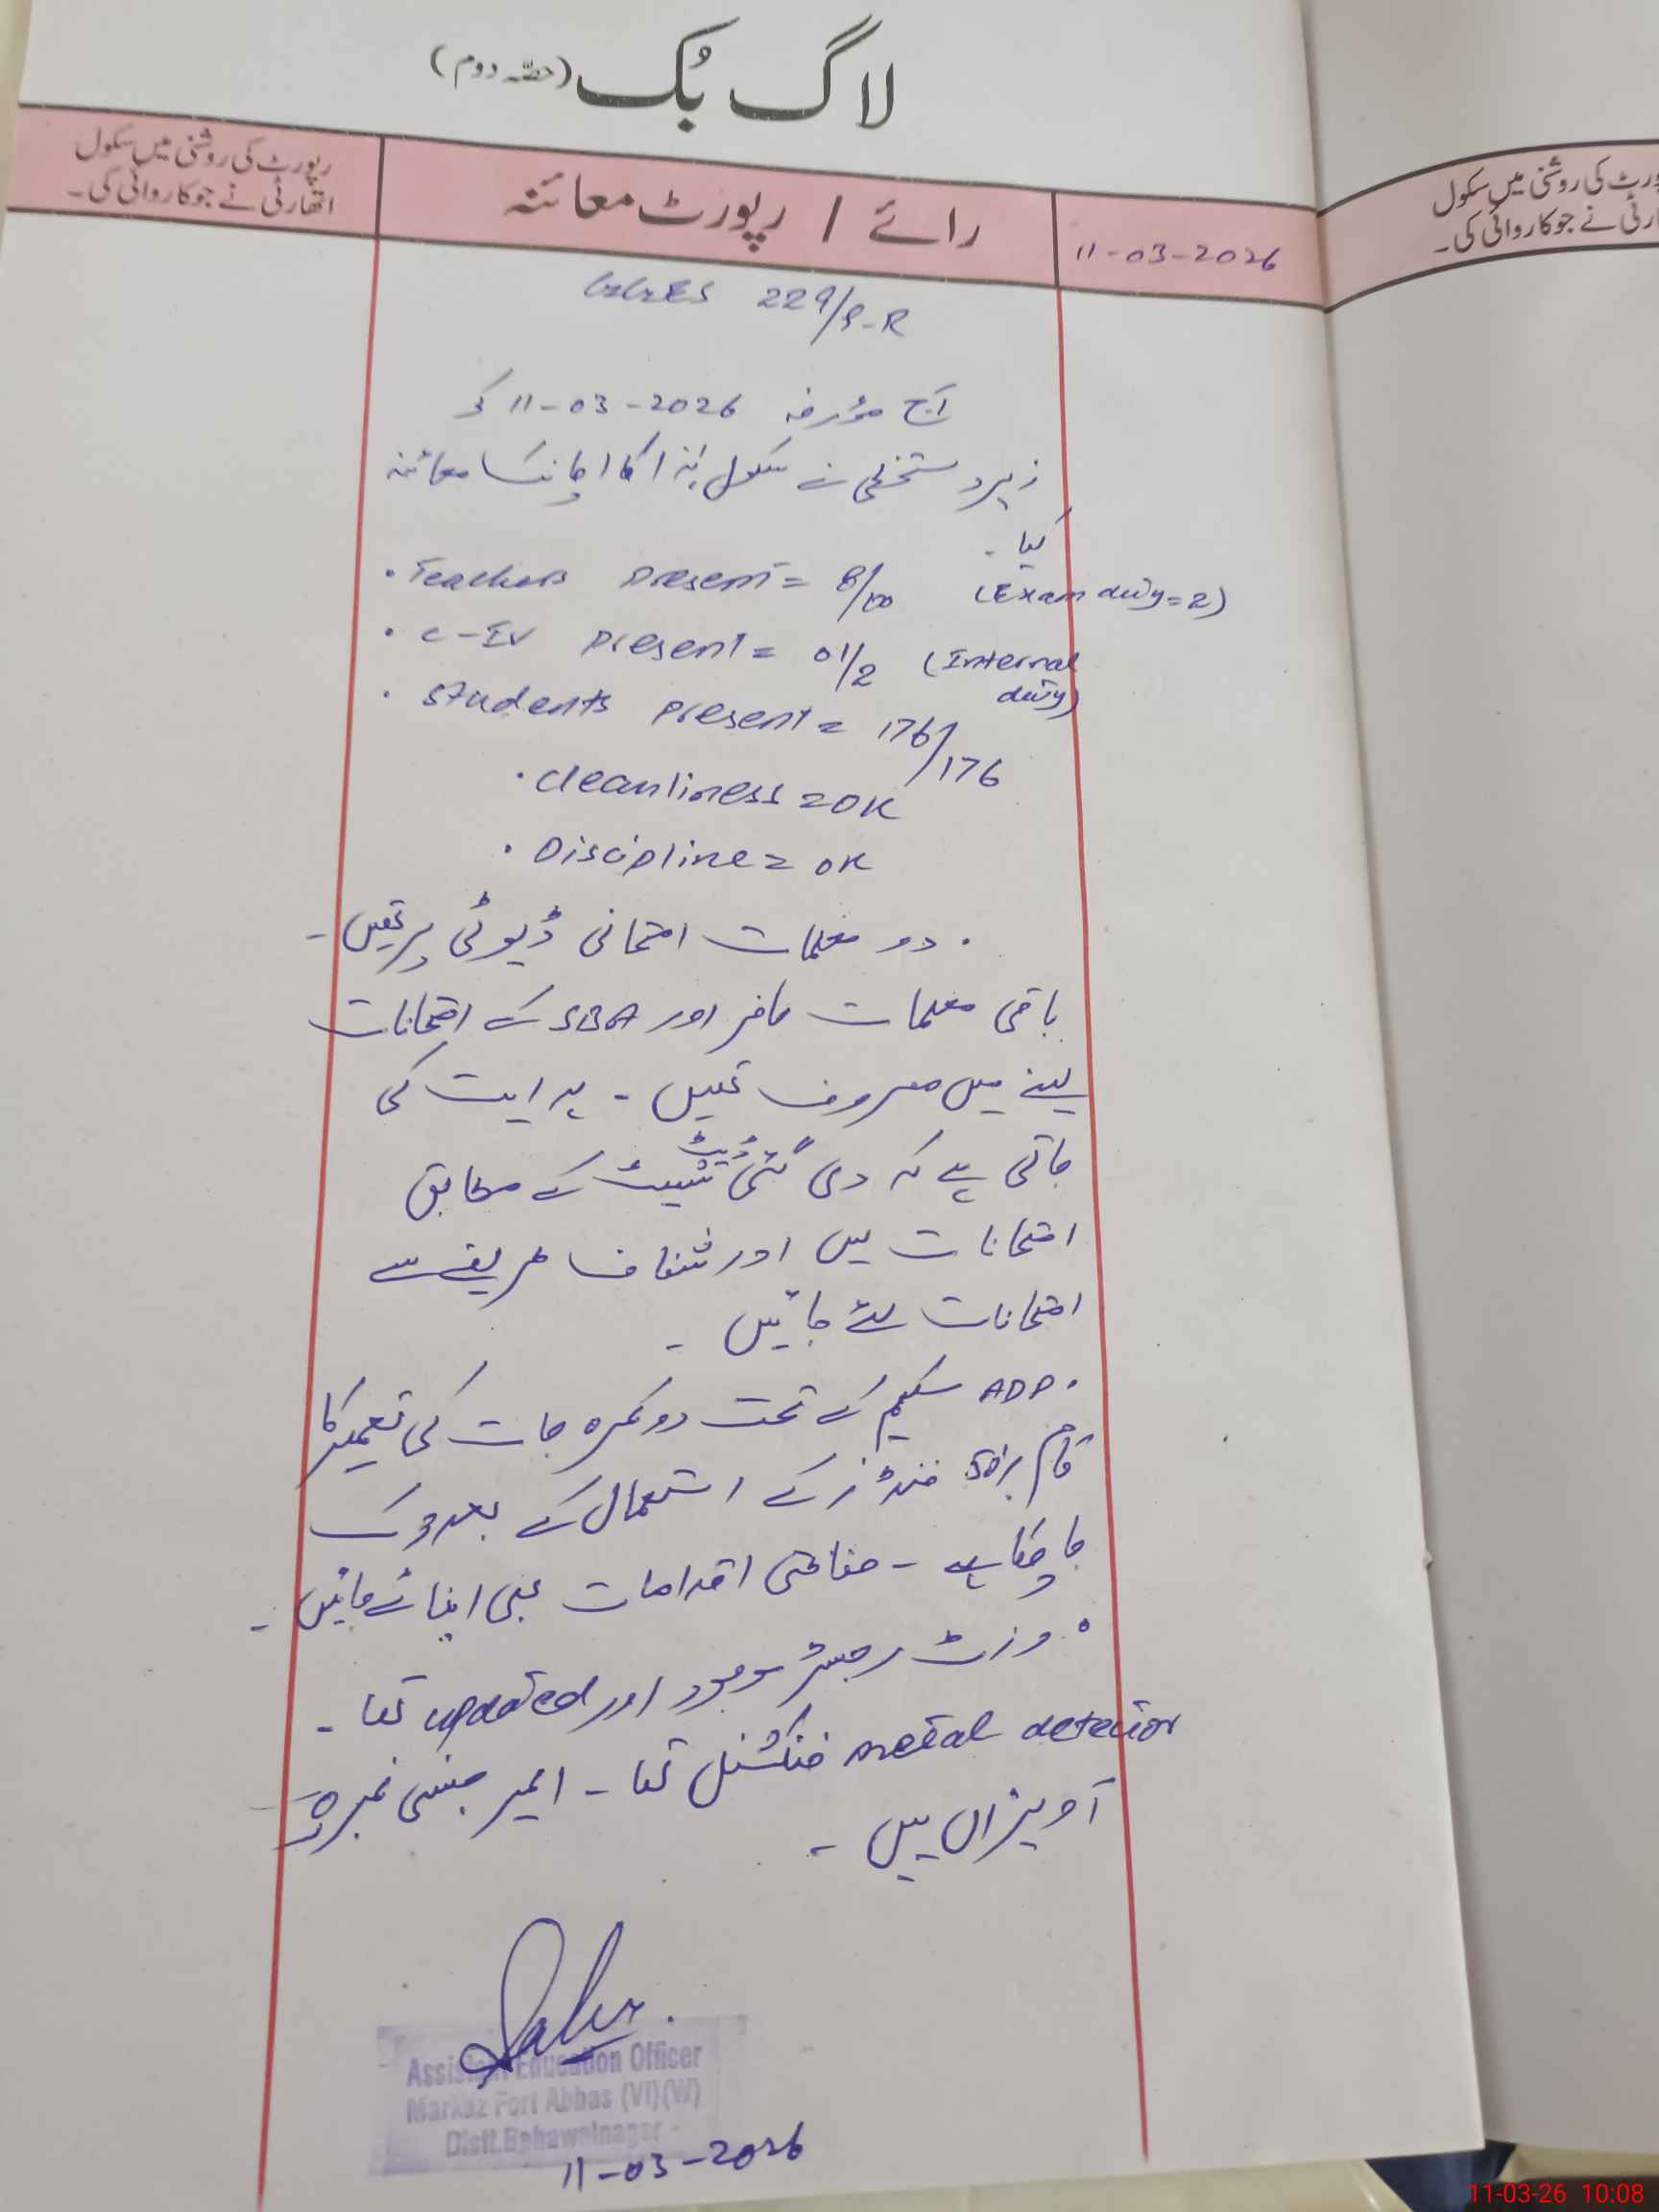 لاگ بُک (حصّہ دوم)
رپورٹ کی روشنی میں سکول
اتھارٹی نے جو کاروائی کی۔
رائے / رپورٹ معائنہ
11-03-2026
GGES 229/9-R
آج مؤرخہ 11-03-2026 کو
زیر دستخطی نے سکول ہٰذا کا اچانک معائنہ
کیا۔
• Teachers present = 8/10 (Exam duty=2)
• C-IV present = 01/2 (Internal
duty)
• Students present = 176/176
• Cleanliness = OK
• Discipline = OK
• دو معلمات امتحانی ڈیوٹی پر تھیں۔
باقی معلمات حاضر اور SBA کے امتحانات
لینے میں مصروف تھیں۔ ہدایت کی
جاتی ہے کہ دی گئی ڈیٹ شیٹ کے مطابق
امتحانات لیں اور شفاف طریقے سے
امتحانات لئے جائیں۔
• ADP سکیم کے تحت دو کمرہ جات کی تعمیر کا
کام 50% فنڈز کے استعمال کے بعد رک
جا چکا ہے۔ حفاظتی اقدامات بھی اپنائے جائیں۔
• وزٹ رجسٹر موجود اور updated تھا۔
metal detector فنکشنل تھا۔ ایمرجنسی نمبرز
آویزاں ہیں۔
Assistant Education Officer
Markaz Fort Abbas (VI)(W)
Distt.Bahawalnagar
11-03-2026
ورٹ کی روشنی میں سکول
ارٹی نے جو کاروائی کی۔
11-03-26 10:08